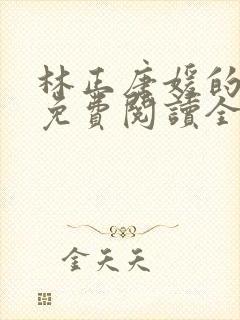 林正唐媛的
免費閱讀全
金天天